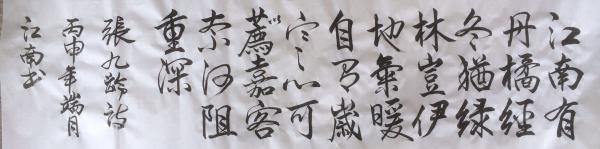 江南有
丹橘經
冬猶緑
林豈伊
地氣暖
自有歲
寒心可
薦嘉客
奈何阻
重深
張九齡詩
丙申年端月
江南书